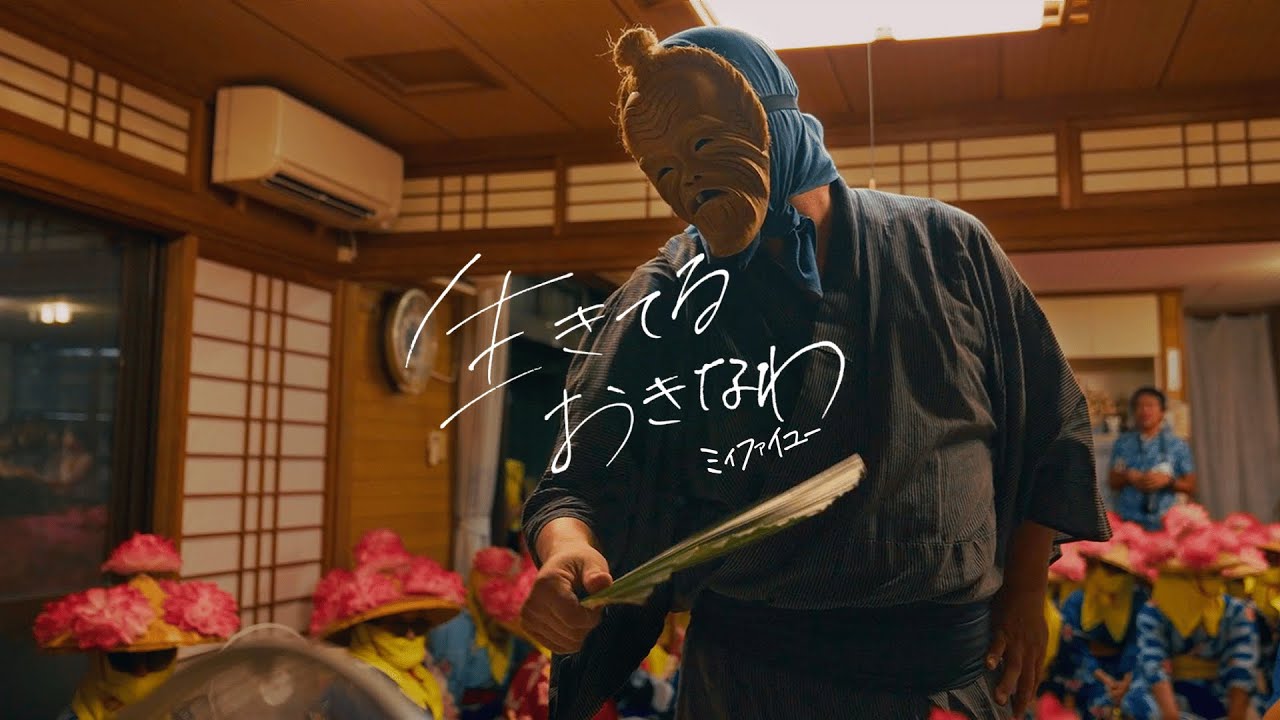 生きてる
おきなわ
ミィファイユー